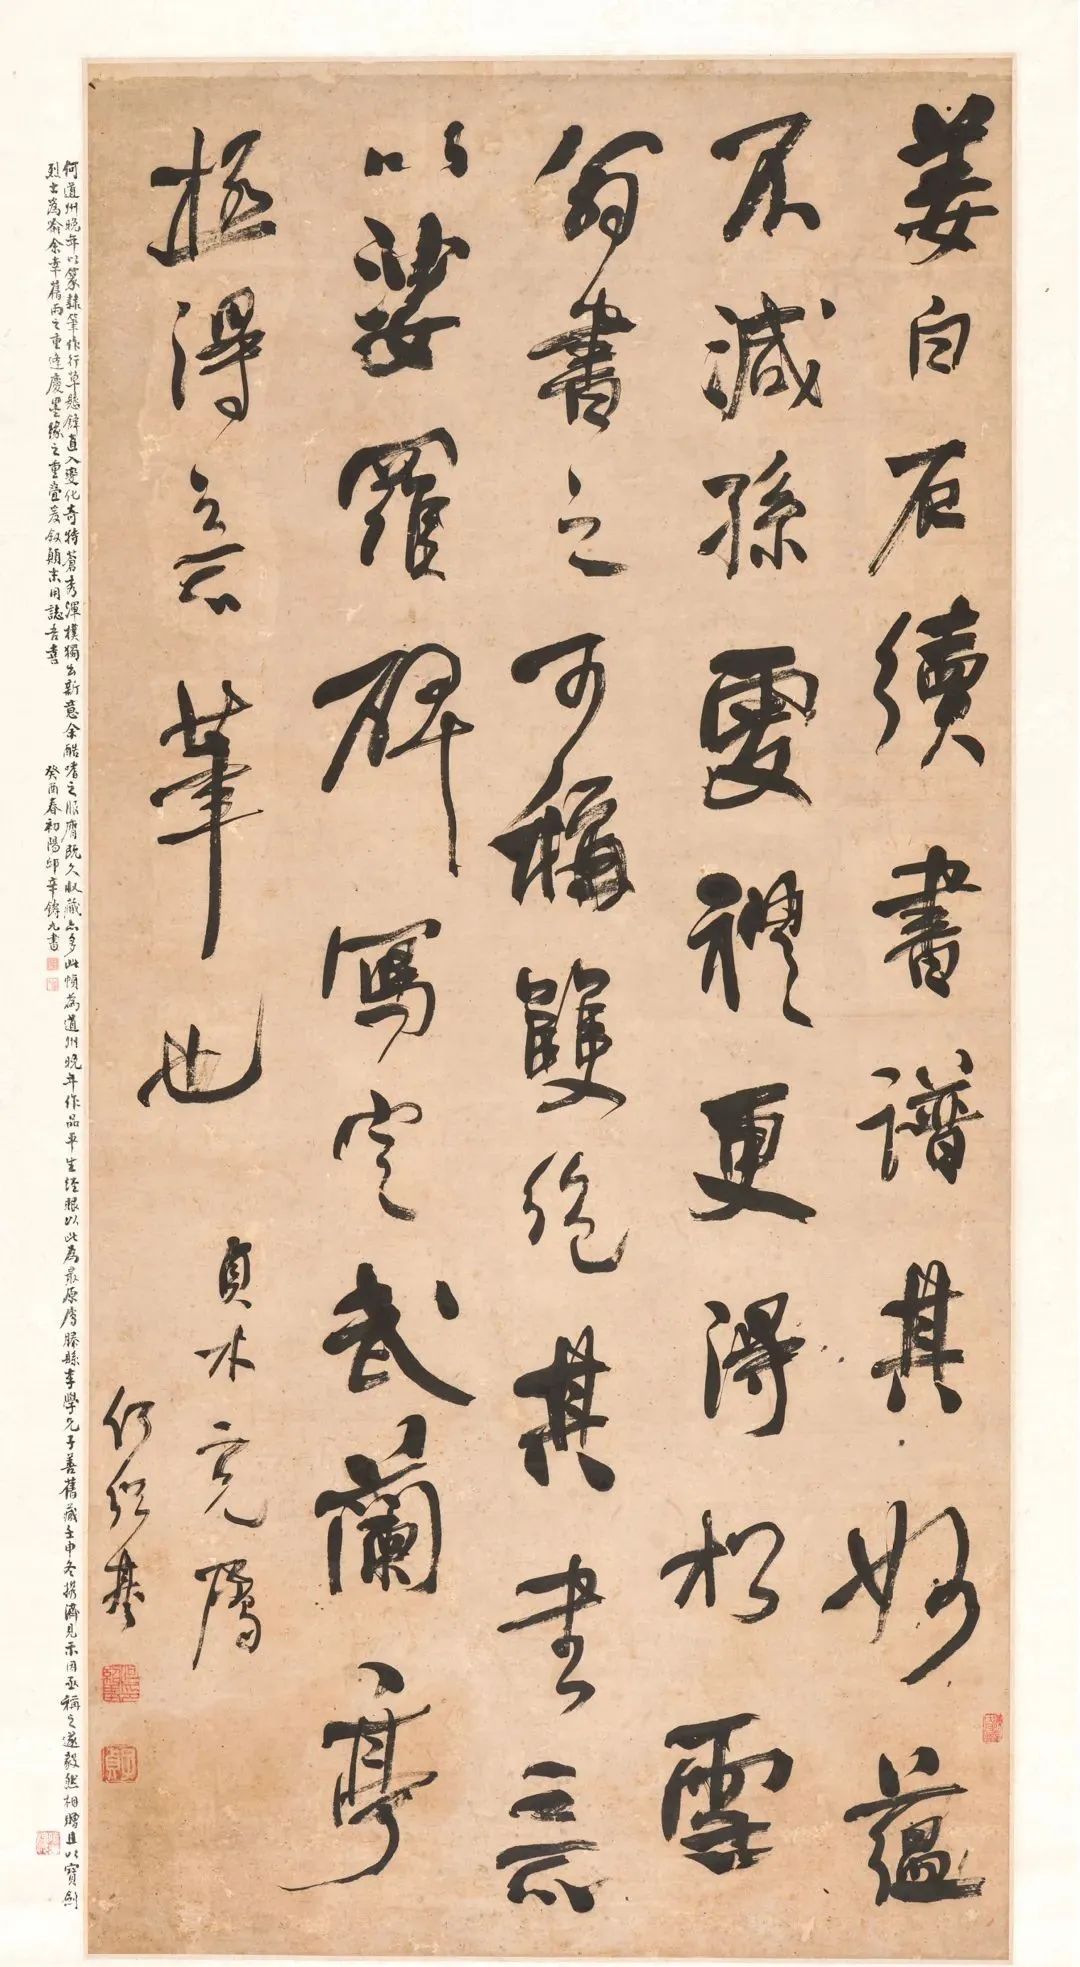 姜白石續書譜其妙蘊
不減孫虔禮更得松雪
翁書之可稱雙絕其書意
以娑羅碑寫定武蘭亭
極得意筆也
貞木亮屬
何紹基
何道州晚年以篆隸筆作行草懸鋒直入變化奇特蒼秀渾樸獨出新意余酷嗜之服膺既久收藏亦多此幀為道州晚年作品平生經眼以此為最原為滕縣李學兄子善舊藏壬申冬携濟見示因亟稱之遂毅然相贈且以寶劍
烈士為喻余幸舊雨之重逢慶墨緣之重疊爰敘顛末用誌吾喜
癸酉春初陽邱辛鑄九書